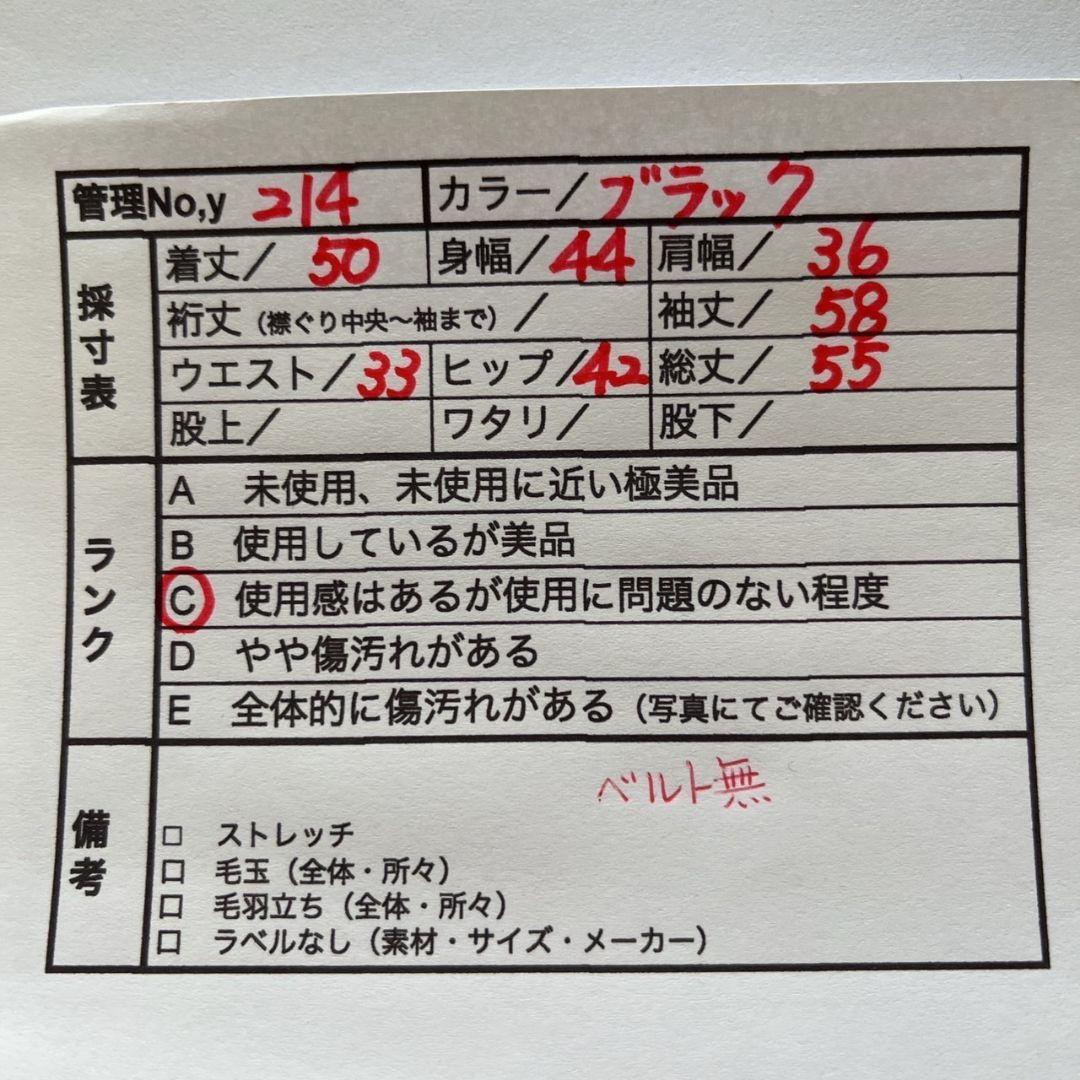 管理No,y 214 カラー／ブラック
採寸表
着丈／ 50 身幅／44 肩幅／ 36
裄丈（襟ぐり中央～袖まで）／ 袖丈／ 58
ウエスト／33 ヒップ／42 総丈／ 55
股上／ ワタリ／ 股下／
ランク
A 未使用、未使用に近い極美品
B 使用しているが美品
C 使用感はあるが使用に問題のない程度
D やや傷汚れがある
E 全体的に傷汚れがある（写真にてご確認ください）
備考
ベルト無
□ ストレッチ
□ 毛玉（全体・所々）
□ 毛羽立ち（全体・所々）
□ ラベルなし（素材・サイズ・メーカー）